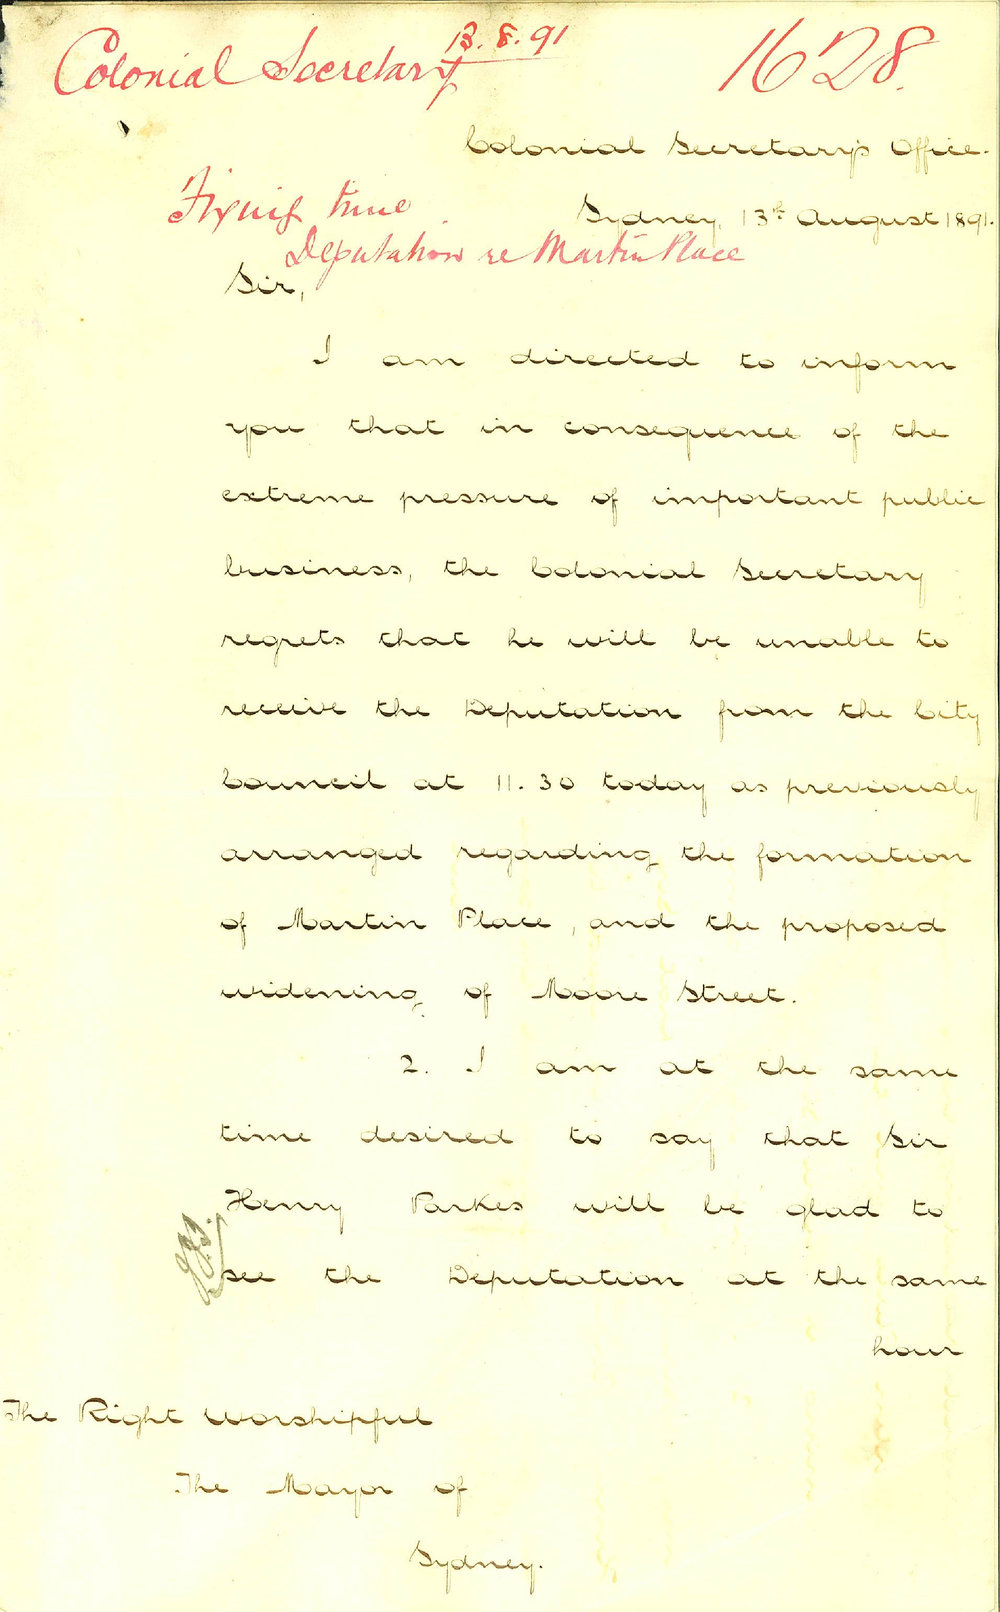 Colonial Secretary 13.8.91 1628.
Colonial Secretary's Office.
Fixing time
Sydney, 13th August 1891.
Deputation re Martin Place
Sir,
I am directed to inform
you that in consequence of the
extreme pressure of important public
business, the Colonial Secretary
regrets that he will be unable to
receive the Deputation from the City
Council at 11.30 today as previously
arranged regarding the formation
of Martin Place, and the proposed
widening of Moore Street.
2. I am at the same
time desired to say that Sir
Henry Parkes will be glad to
see the Deputation at the same
hour
The Right Worshipful
The Mayor of
Sydney.